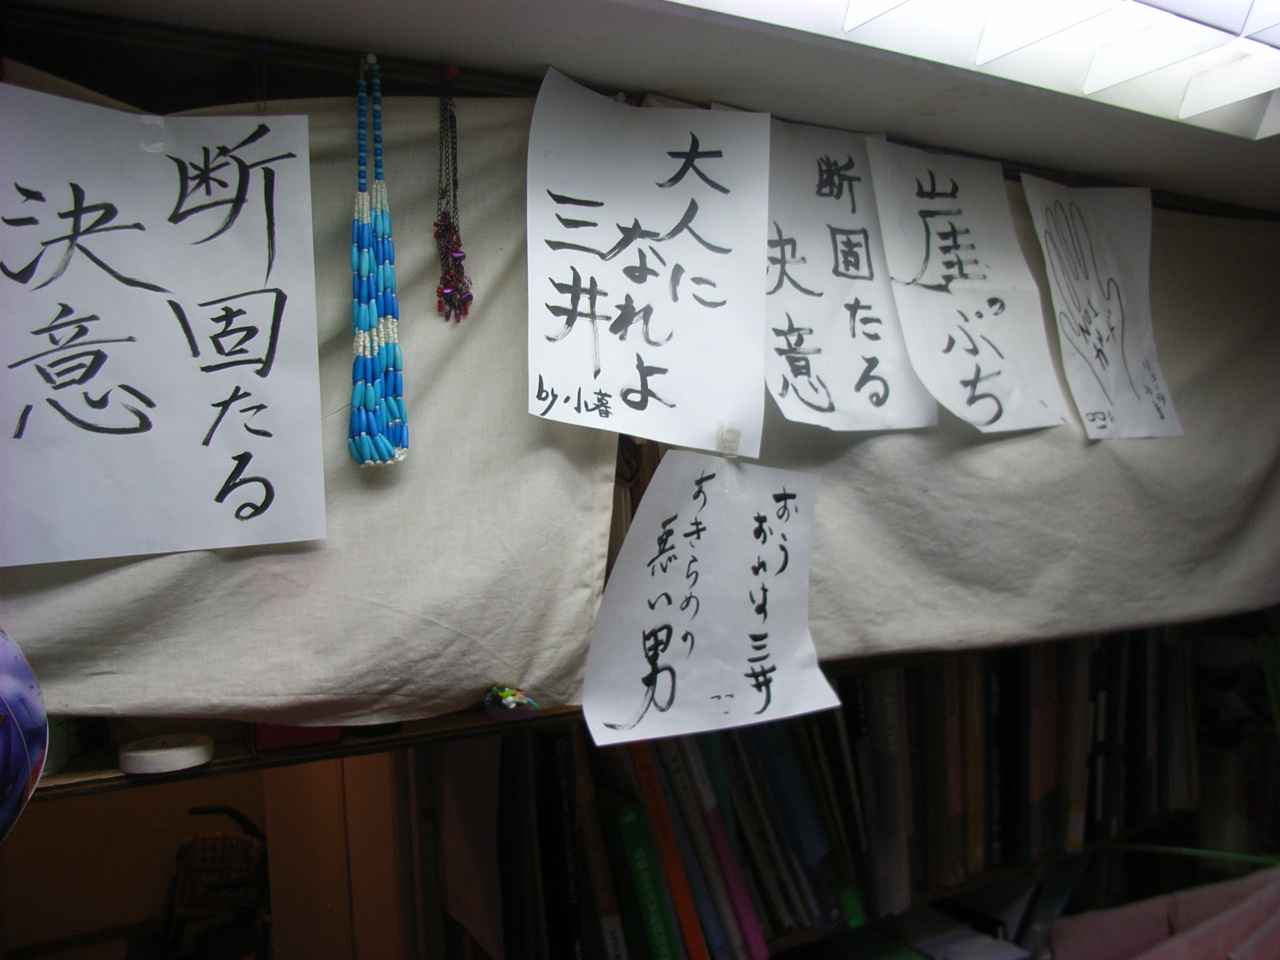 断固たる
決意
大人に
なれよ
三井
by.小暮
断固たる
決意
崖っぷち
No.1
ガード
おう
おれは三井
あきらめの
悪い男